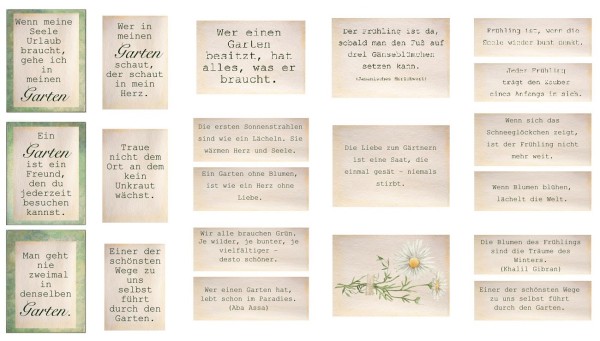 Wenn meine
Seele
Urlaub
braucht,
gehe ich
in
meinen
Garten
Wer in
meinen
Garten
schaut,
der schaut
in mein
Herz.
Wer einen
Garten
besitzt, hat
alles, was er
braucht.
Der Frühling ist da,
sobald man den Fuß auf
drei Gänseblümchen
setzen kann.
Frühling ist, wenn die
Seele wieder bunt denkt.
Jeder Frühling
trägt den Zauber
eines Anfangs in sich.
Ein
Garten
ist ein
Freund,
den du
jederzeit
besuchen
kannst.
Traue
nicht dem
Ort an dem
kein
Unkraut
wächst.
Die ersten Sonnenstrahlen
sind wie ein Lächeln. Sie
wärmen Herz und Seele.
Ein Garten ohne Blumen,
ist wie ein Herz ohne
Liebe.
Die Liebe zum Gärtnern
ist eine Saat, die
einmal gesät - niemals
stirbt.
Wenn sich das
Schneeglöckchen zeigt,
ist der Frühling nicht
mehr weit.
Wenn Blumen blühen,
lächelt die Welt.
Man geht
nie
zweimal
in
denselben
Garten.
Einer der
schönsten
Wege zu
uns
selbst
führt
durch den
Garten.
Wir alle brauchen Grün.
Je wilder, je bunter, je
vielfältiger -
desto schöner.
Wer einen Garten hat,
lebt schon im Paradies.
(Aba Assa)
Die Blumen des Frühlings
sind die Träume des
Winters.
(Khalil Gibran)
Einer der schönsten Wege
zu uns selbst führt
durch den Garten.